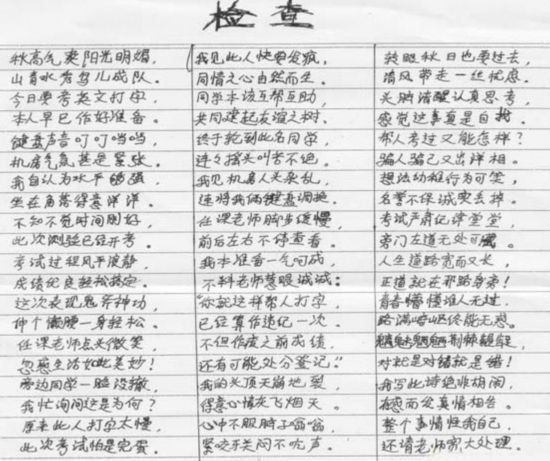 检查
秋高气爽阳光明媚，
山青水秀鸟儿成队。
今日要考英文打字，
本人早已作好准备。
键盘声音叮叮当当，
机房气氛甚是紧张。
我自认为水平
坐在角落得意洋洋。
不知不觉时间刚好，
此次测验已经开考。
考试过程风平浪静，
成绩优良轻松搞定。
这次表现鬼斧神功，
伸个懒腰一身轻松。
任课老师点头微笑，
忽感生活如此美妙！
旁边同学一脸没辙，
我忙询问这是为何？
原来此人打字太慢，
此次考试怕是完蛋。
我见此人快要发疯，
同情之心由然而生。
同学本该互帮互助，
共同建起友谊之树。
终于轮到此名同学，
连连摇头叫苦不绝。
我见机房人头杂乱，
连将我俩键盘调换。
任课老师脚步缓慢，
前后左右不停查看。
我本准备一气呵成，
不料老师慧眼诚诚：
“你就这样帮人打字，
已经算作违纪一次。
不但伤废之前成绩，
还有可能处分登记。”
我的头顶天崩地裂，
得意心情灰飞烟灭。
心中不服脖子
紧咬牙关闷不吭声。
转眼秋日也要过去，
清风带走一丝忧虑。
头脑清醒认真思考，
感觉这事真是自找。
帮人考过又能怎样？
骗人骗己又出洋相。
想法幼稚行为可笑，
名誉不保诚实丢掉。
考试严肃纪律堂堂，
旁门左道无处可藏。
人生道路宽而又长，
正道就在那路旁！
青春懵懂谁人无过，
路满崎岖终能无惑。
荆棘
对就是对错就是错！
我写此诗绝非胡闹，
有感而发真情相告。
整个事情怪我自己，
还请老师宽大处理。